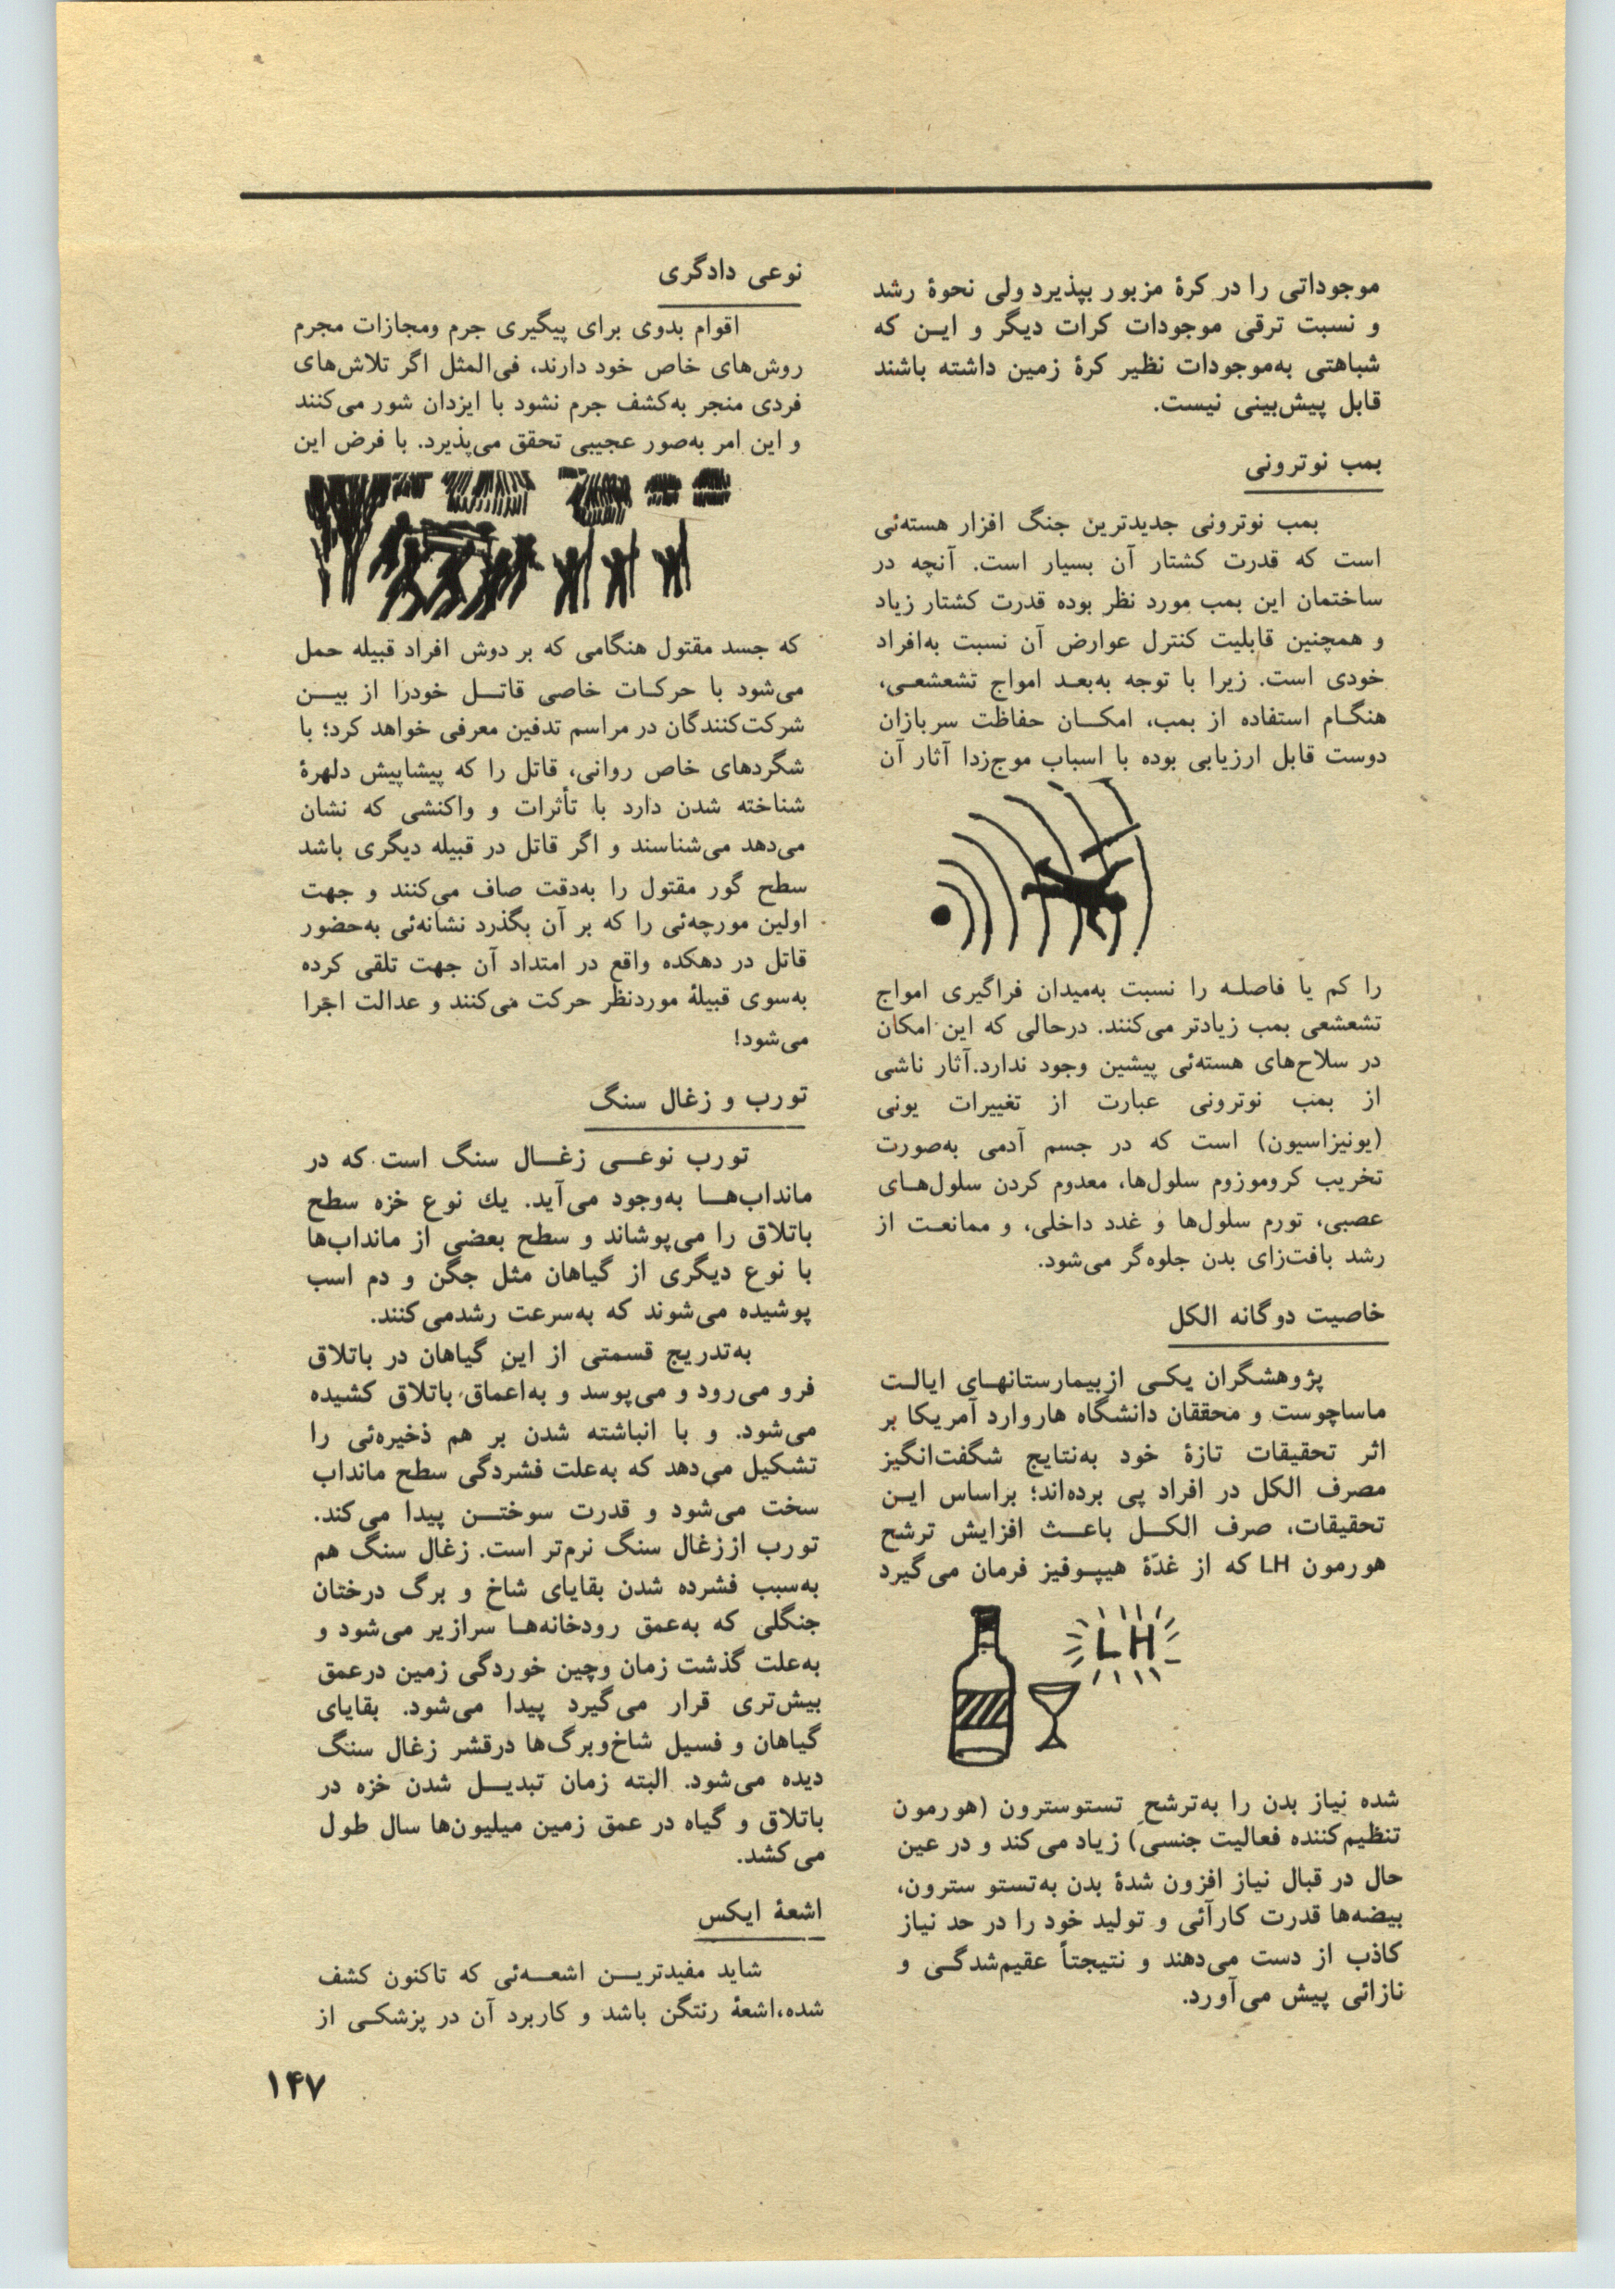 موجوداتی را در کرهٔ مزبور بپذیرد ولی نحوهٔ رشد
و نسبت ترقی موجودات کرات دیگر و ایـن که
شباهتی به‌موجودات نظیر کرهٔ زمین داشته باشند
قابل پیش‌بینی نیست.
بمب نوترونی
بمب نوترونی جدیدترین جنگ افزار هسته‌ئی
است که قدرت کشتار آن بسیار است. آنچه در
ساختمان این بمب مورد نظر بوده قدرت کشتار زیاد
و همچنین قابلیت کنترل عوارض آن نسبت به‌افراد
خودی است. زیرا با توجه به‌بعـد امواج تشعشعـی،
هنگـام استفاده از بمب، امکـان حفاظت سربازان
دوست قابل ارزیابی بوده با اسباب موج‌زدا آثار آن
را کم یا فاصلـه را نسبت به‌میدان فراگیری امواج
تشعشعی بمب زیادتر می‌کنند. درحالی که این امکان
در سلاح‌های هسته‌ئی پیشین وجود ندارد. آثار ناشی
از بمب نوترونی عبارت از تغییرات یونی
(یونیزاسیون) است که در جسم آدمی به‌صورت
تخریب کروموزوم سلول‌ها، معدوم کردن سلول‌هـای
عصبی، تورم سلول‌ها و غدد داخلی، و ممانعـت از
رشد بافت‌زای بدن جلوه‌گر می‌شود.
خاصیت دوگانه الکل
پژوهشگران یکـی ازبیمارستانهـای ایالـت
ماساچوست و محققان دانشگاه هاروارد آمریکا بر
اثر تحقیقات تازهٔ خود به‌نتایج شگفت‌انگیز
مصرف الکل در افراد پی برده‌اند؛ براساس ایـن
تحقیقات، صرف الکـل باعـث افزایش ترشح
هورمون LH که از غدّهٔ هیپـوفیز فرمان می‌گیرد
LH
شده نیاز بدن را به‌ترشح تستوسترون (هورمون
تنظیم‌کننده فعالیت جنسی) زیاد می‌کند و در عین
حال در قبال نیاز افزون شدهٔ بدن به‌تستو سترون،
بیضه‌ها قدرت کارآئی و تولید خود را در حد نیاز
کاذب از دست می‌دهند و نتیجتاً عقیم‌شدگـی و
نازائی پیش می‌آورد.
نوعی دادگری
اقوام بدوی برای پیگیری جرم ومجازات مجرم
روش‌های خاص خود دارند، فی‌المثل اگر تلاش‌های
فردی منجر به‌کشف جرم نشود با ایزدان شور می‌کنند
و این امر به‌صور عجیبی تحقق می‌پذیرد. با فرض این
که جسد مقتول هنگامی که بر دوش افراد قبیله حمل
می‌شود با حرکـات خاصی قاتـل خودرا از بیـن
شرکت‌کنندگان در مراسم تدفین معرفی خواهد کرد؛ با
شگردهای خاص روانی، قاتل را که پیشاپیش دلهرهٔ
شناخته شدن دارد با تأثرات و واکنشی که نشان
می‌دهد می‌شناسند و اگر قاتل در قبیله دیگری باشد
سطح گور مقتول را به‌دقت صاف می‌کنند و جهت
اولین مورچه‌ئی را که بر آن بگذرد نشانه‌ئی به‌حضور
قاتل در دهکده واقع در امتداد آن جهت تلقی کرده
به‌سوی قبیلهٔ موردنظر حرکت می‌کنند و عدالت اجرا
می‌شود!
تورب و زغال سنگ
تورب نوعـی زغـال سنگ است که در
مانداب‌هـا به‌وجود می‌آید. یك نوع خزه سطح
باتلاق را می‌پوشاند و سطح بعضی از مانداب‌ها
با نوع دیگری از گیاهان مثل جگن و دم اسب
پوشیده می‌شوند که به‌سرعت رشدمی‌کنند.
به‌تدریج قسمتی از این گیاهان در باتلاق
فرو می‌رود و می‌پوسد و به‌اعماق باتلاق کشیده
می‌شود. و با انباشته شدن بر هم ذخیره‌ئی را
تشکیل می‌دهد که به‌علت فشردگی سطح مانداب
سخت می‌شود و قدرت سوختـن پیدا می‌کند.
تورب اززغال سنگ نرم‌تر است. زغال سنگ هم
به‌سبب فشرده شدن بقایای شاخ و برگ درختان
جنگلی که به‌عمق رودخانه‌هـا سرازیر می‌شود و
به‌علت گذشت زمان وچین خوردگی زمین درعمق
بیش‌تری قرار می‌گیرد پیدا می‌شود. بقایای
گیاهان و فسیل شاخ‌وبرگ‌ها درقشر زغال سنگ
دیده می‌شود. البته زمان تبدیـل شدن خزه در
باتلاق و گیاه در عمق زمین میلیون‌ها سال طول
می‌کشد.
اشعهٔ ایکس
شاید مفیدتریـن اشعـه‌ئی که تاکنون کشف
شده،اشعهٔ رنتگن باشد و کاربرد آن در پزشکـی از
۱۴۷